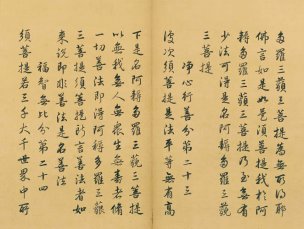 多羅三藐三菩提為無所得耶
佛言如是如是須菩提我於阿
耨多羅三藐三菩提乃至無有
少法可得是名阿耨多羅三藐
三菩提
淨心行善分第二十三
復次須菩提是法平等無有高
下是名阿耨多羅三藐三菩提
以無我無人無眾生無壽者脩
一切善法即得阿耨多羅三藐
三菩提須菩提所言善法者如
來說即非善法是名善法
福智無比分第二十四
須菩提若三千大千世界中所